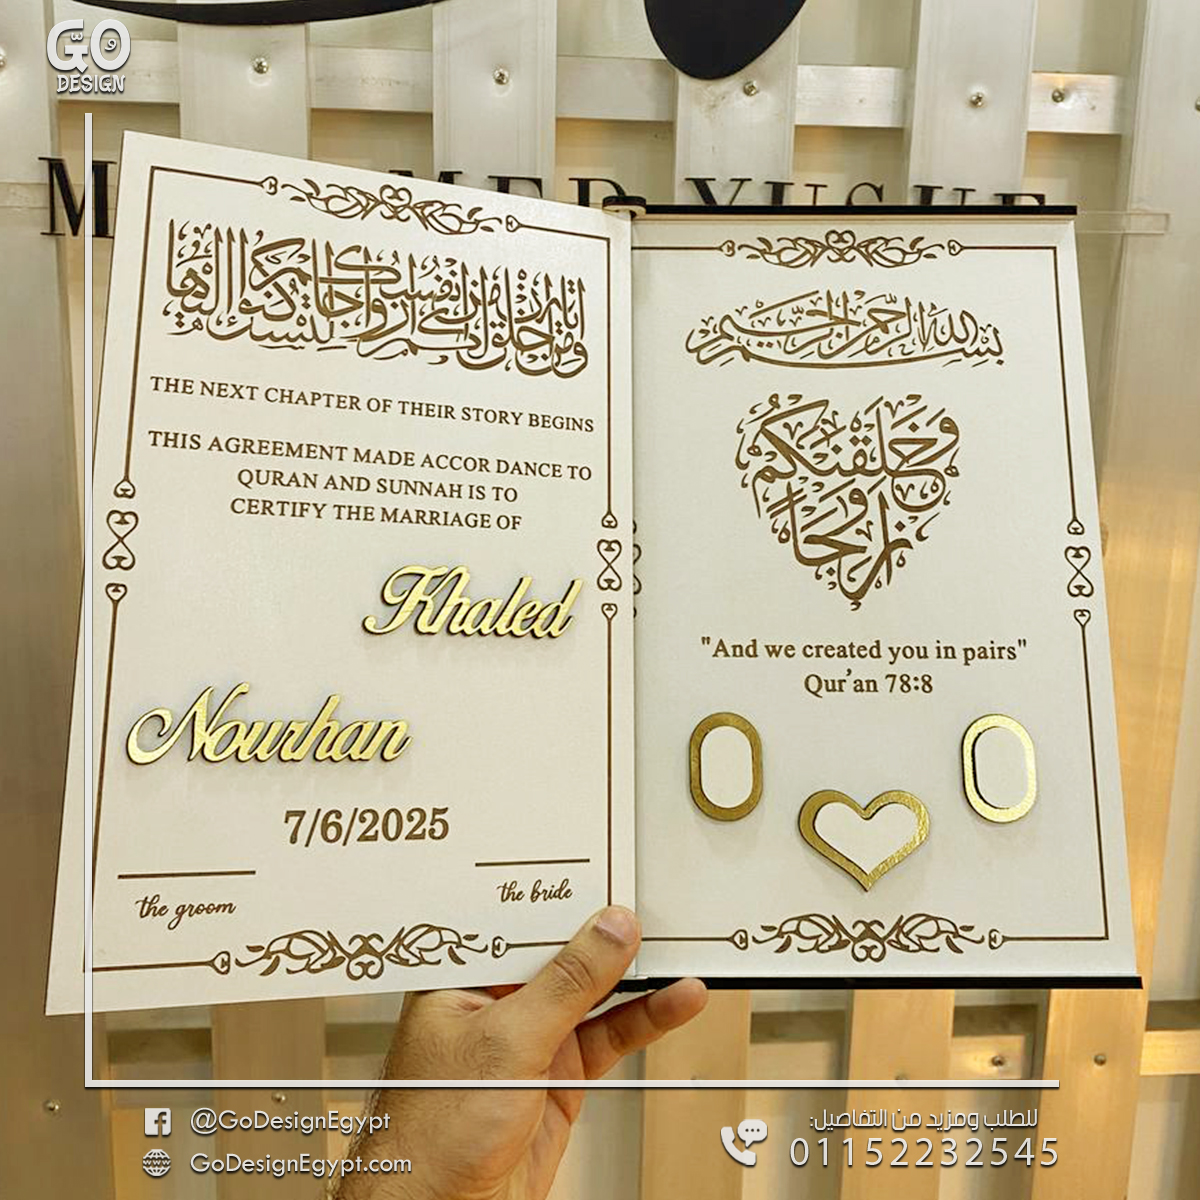 GO
DESIGN
ومن آياته أن خلق لكم من أنفسكم أزواجا لتسكنوا إليها
THE NEXT CHAPTER OF THEIR STORY BEGINS
THIS AGREEMENT MADE ACCOR DANCE TO
QURAN AND SUNNAH IS TO
CERTIFY THE MARRIAGE OF
Khaled
Nourhan
7/6/2025
the groom
the bride
بسم الله الرحمن الرحيم
وَخَلَقْنَكُمْ
أَزْوَاجًا
"And we created you in pairs"
Qur'an 78:8
@GoDesignEgypt
GoDesignEgypt.com
للطلب ومزيد من التفاصيل:
01152232545